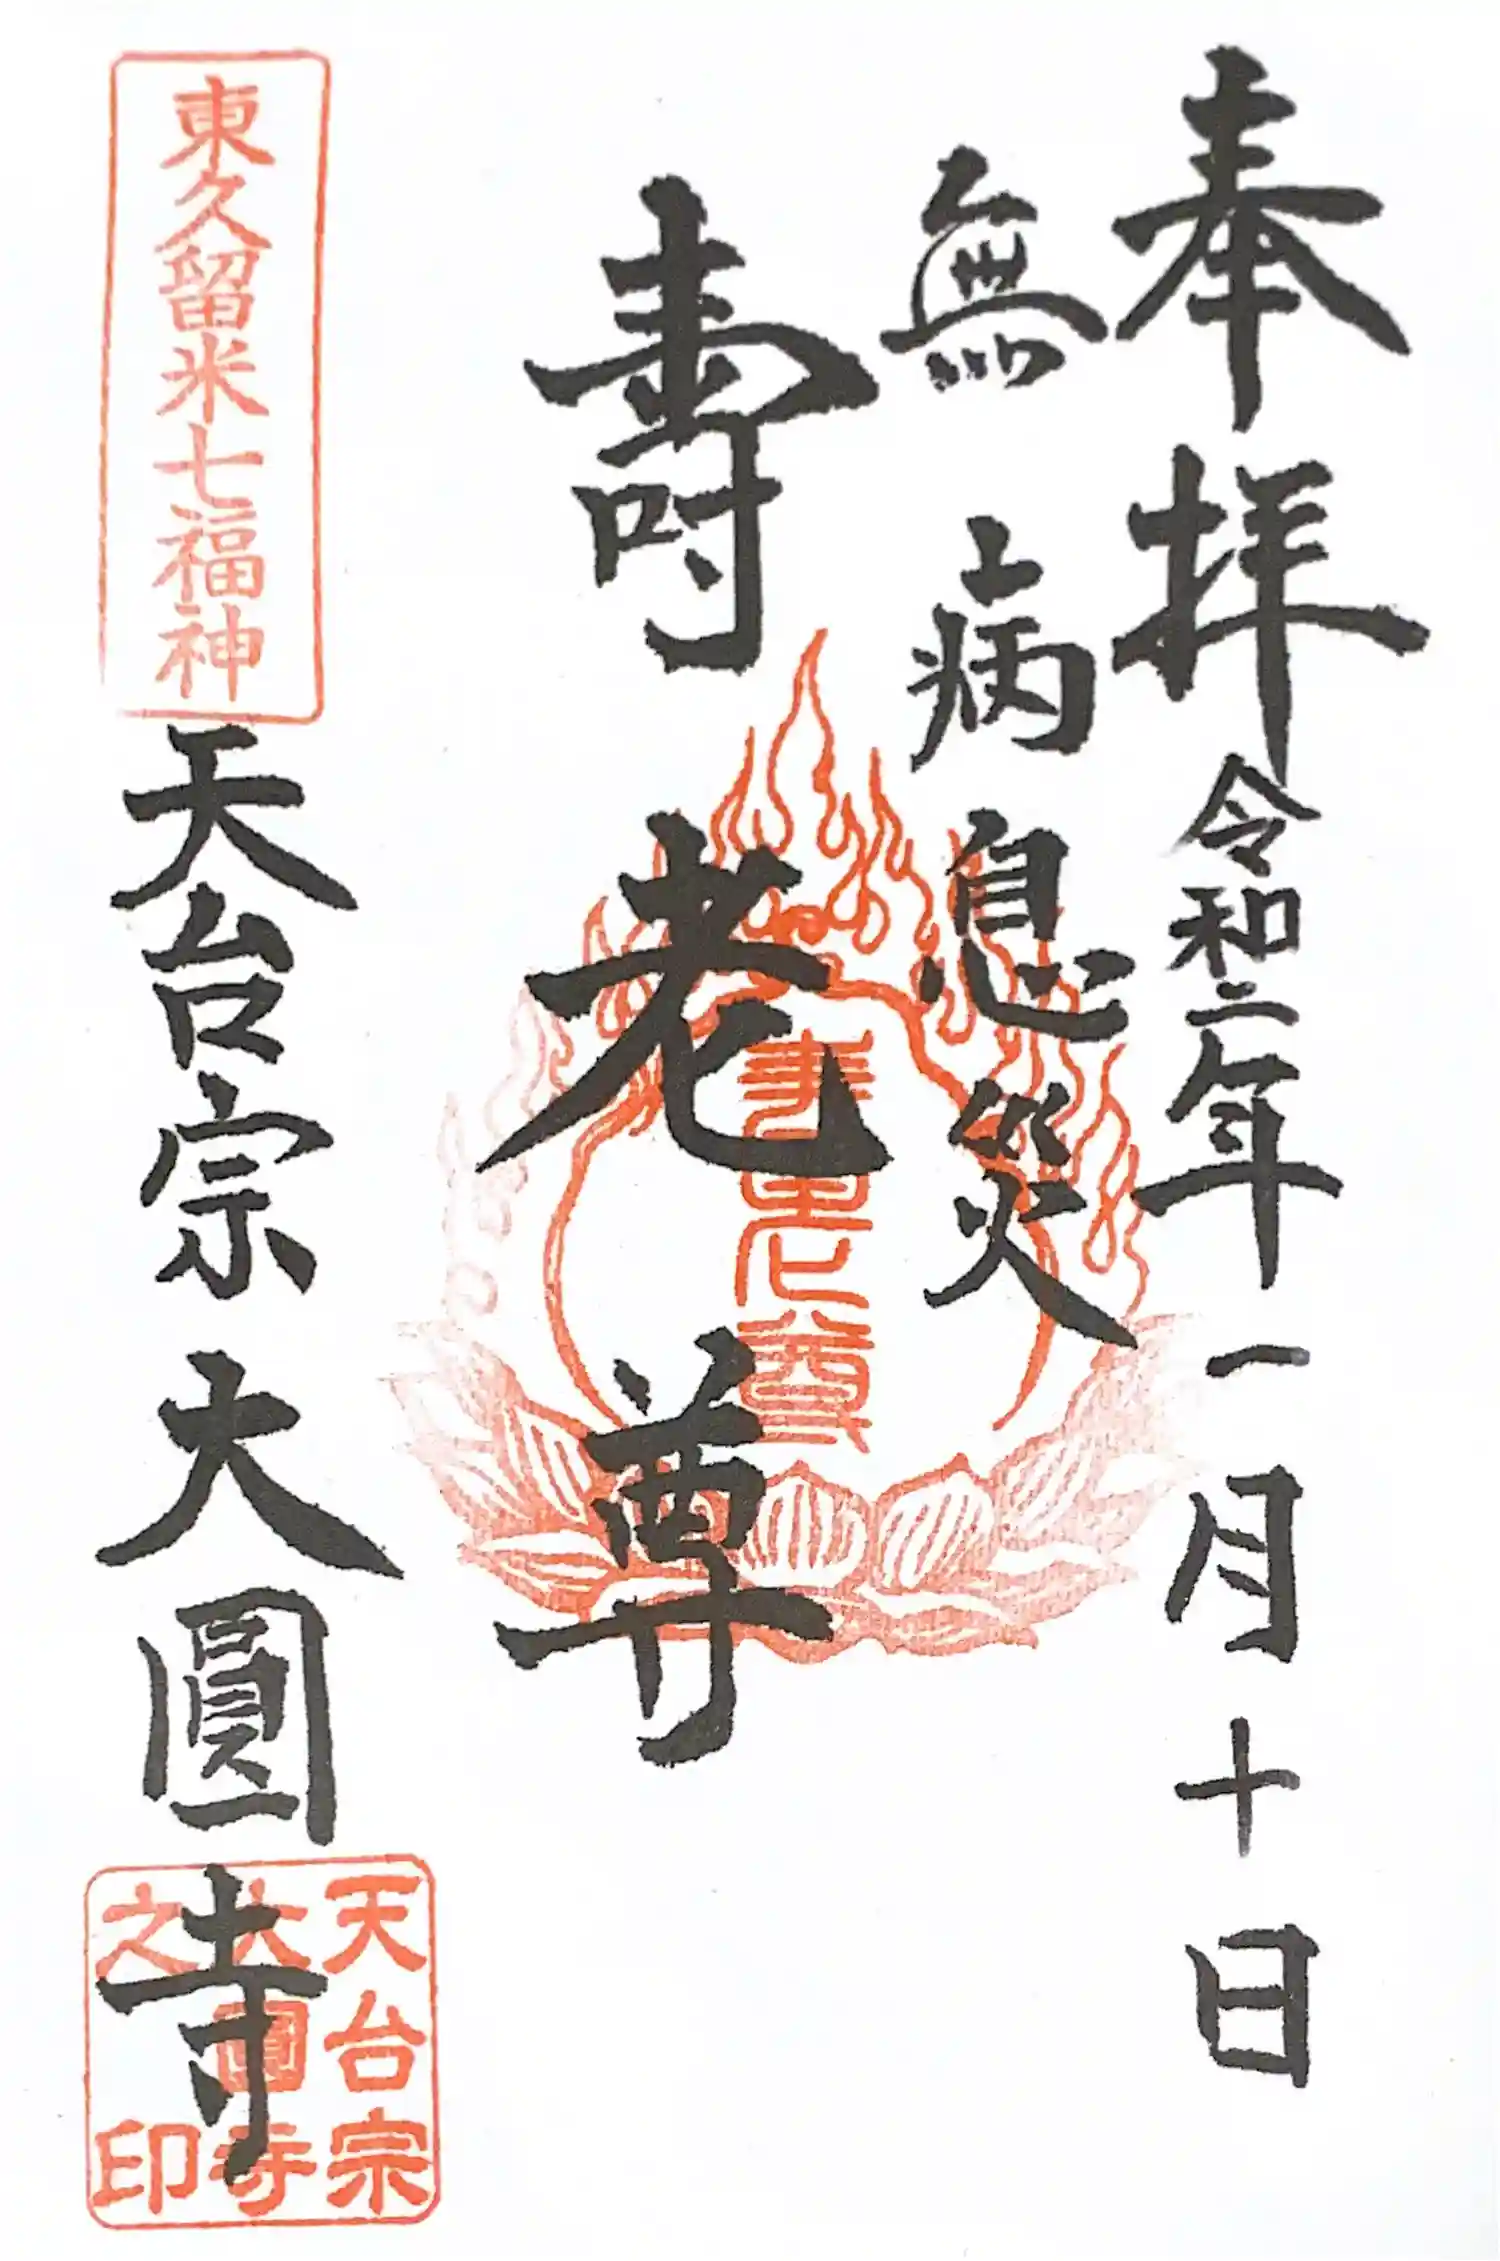 奉拝
令和二年一月十日
無病息災
寿老尊
壽老尊
東久留米七福神
天台宗大圓寺
天台宗
大圓寺
之印